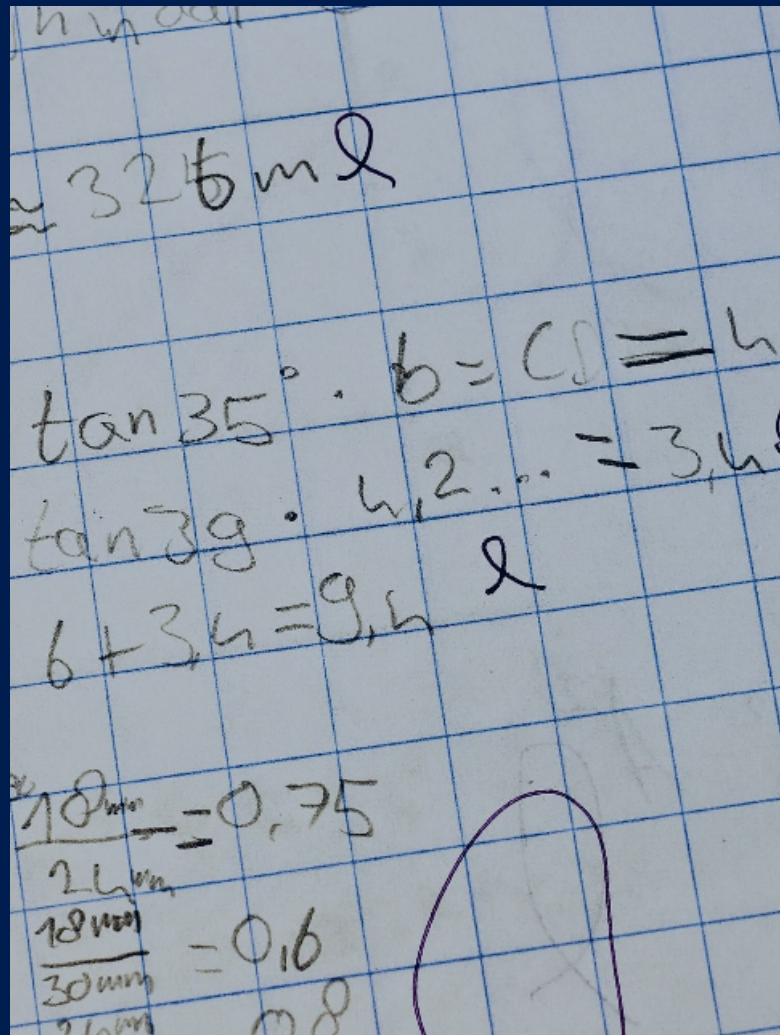 tan 35° · 6 = CD = 4
tan 39 · 4,2... = 3,4
6 + 3,4 = 9,4
18mm/24mm = 0,75
18mm/30mm = 0,6
0,8